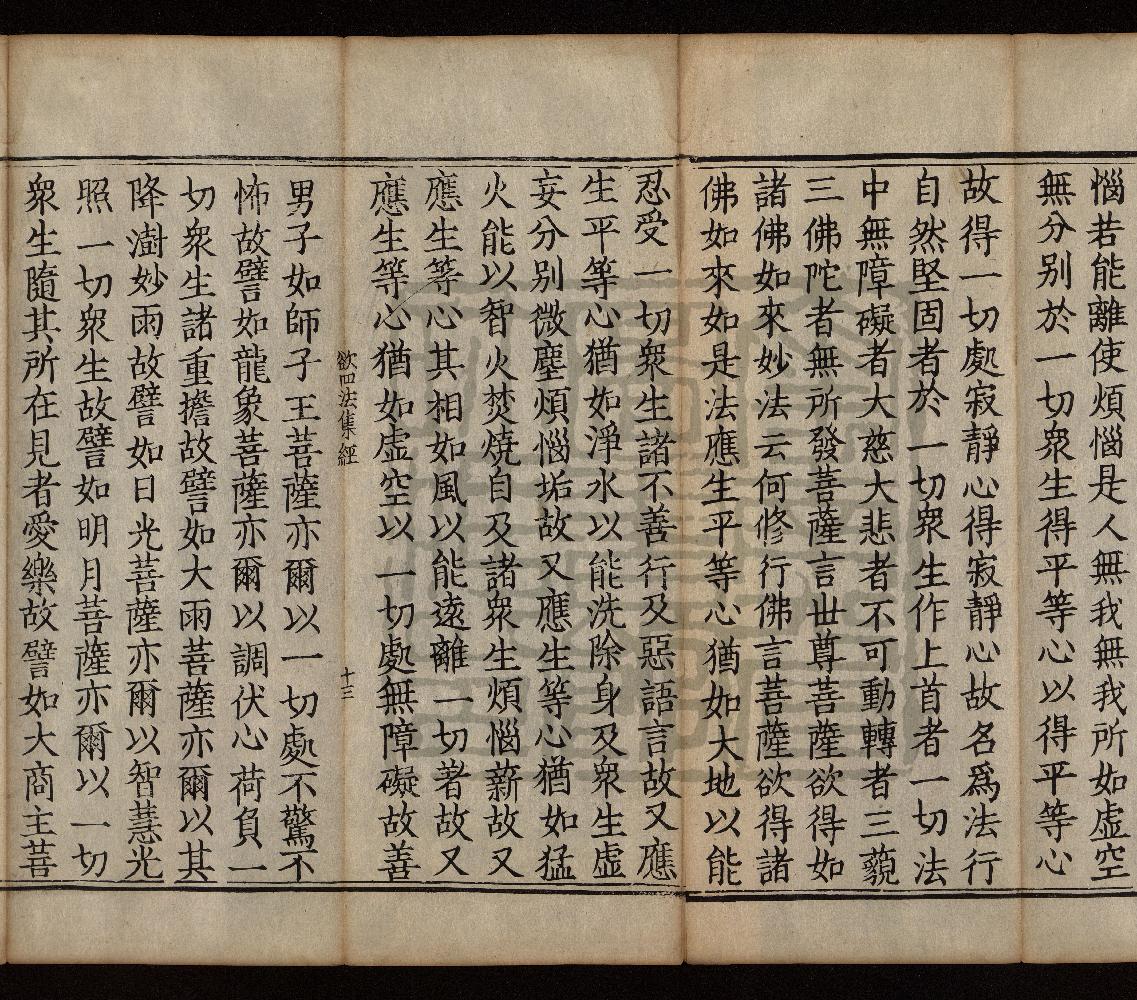 惱若能離使煩惱是人無我無我所如虛空
無分别於一切衆生得平等心以得平等心
故得一切處寂靜心得寂靜心故名爲法行
自然堅固者於一切衆生作上首者一切法
中無障礙者大慈大悲者不可動轉者三藐
三佛陀者無所發菩薩言世尊菩薩欲得如
諸佛如來妙法云何修行佛言菩薩欲得諸
佛如來如是法應生平等心猶如大地以能
忍受一切衆生諸不善行及惡語言故又應
生平等心猶如淨水以能洗除身及衆生虛
妄分别微塵煩惱垢故又應生等心猶如猛
火能以智火焚燒自及諸衆生煩惱薪故又
應生等心其相如風以能遠離一切著故又
應生等心猶如虛空以一切處無障礙故善
欲四法集經 十三
男子如師子王菩薩亦爾以一切處不驚不
怖故譬如龍象菩薩亦爾以調伏心荷負一
切衆生諸重擔故譬如大雨菩薩亦爾以其
降澍妙雨故譬如日光菩薩亦爾以智慧光
照一切衆生故譬如明月菩薩亦爾以一切
衆生隨其所在見者愛樂故譬如大商主菩